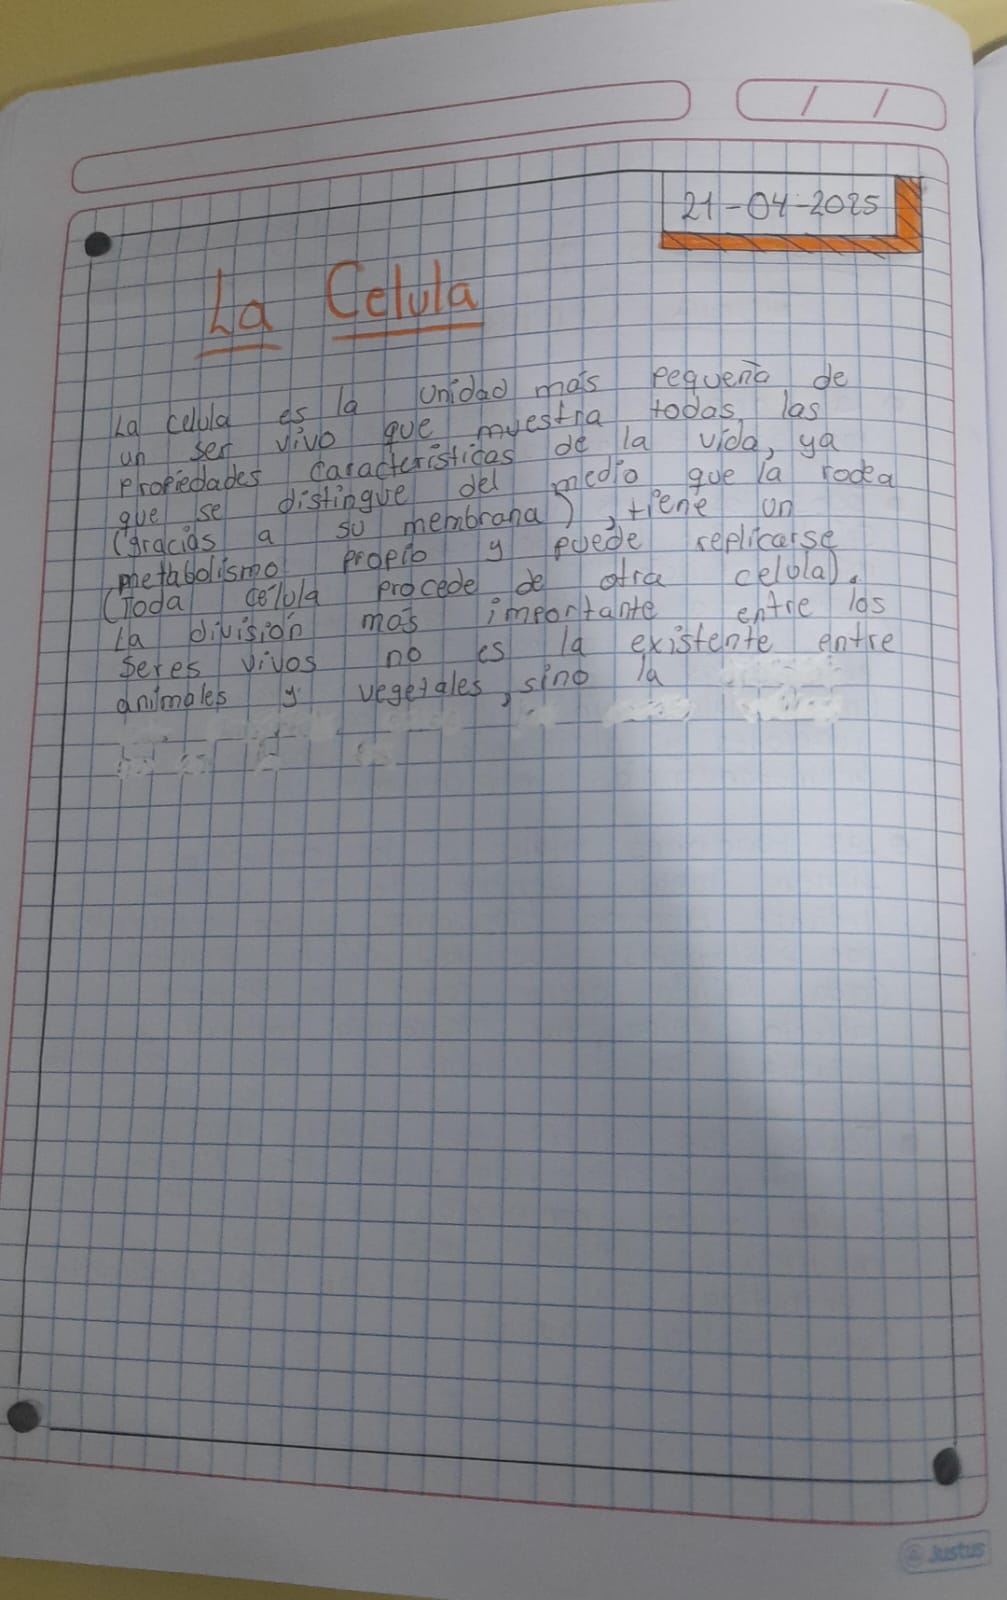 21-04-2025
La Celula
La celula es la unidad más pequeña de
un ser vivo que muestra todas las
propiedades características de la vida, ya
que se distingue del medio que la rodea
(gracias a su membrana), tiene un
metabolismo propio y puede replicarse
(Toda celula procede de otra celula).
La división más importante entre los
seres vivos no es la existente entre
animales y vegetales, sino la
Justus